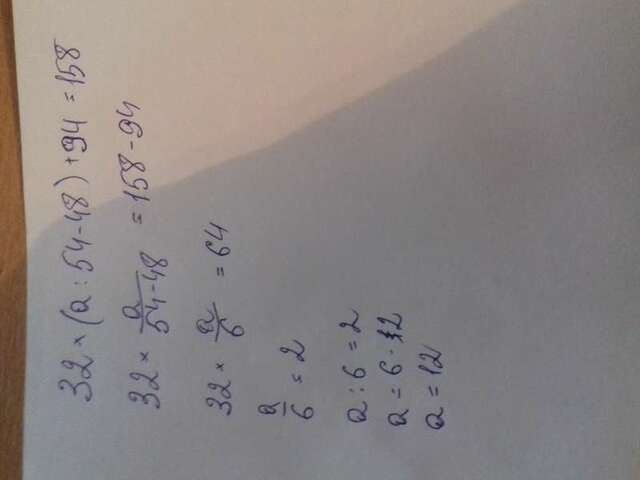 32 × (a : 54 - 48) + 94 = 158
32 × a/(54 - 48) = 158 - 94
32 × a/6 = 64
a/6 = 2
a : 6 = 2
a = 6 · 2
a = 12